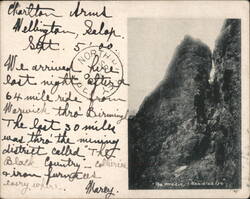 Charlton Arms
Wellington, Salop.
Sept. 5. 00.
We arrived here
last night after a
64 mile ride from
Warwick thro Birming
The last 30 miles
was thro the mining
district called "The
Black Country" - collieries
& iron furnaces
every where.
Harry.
NORTH